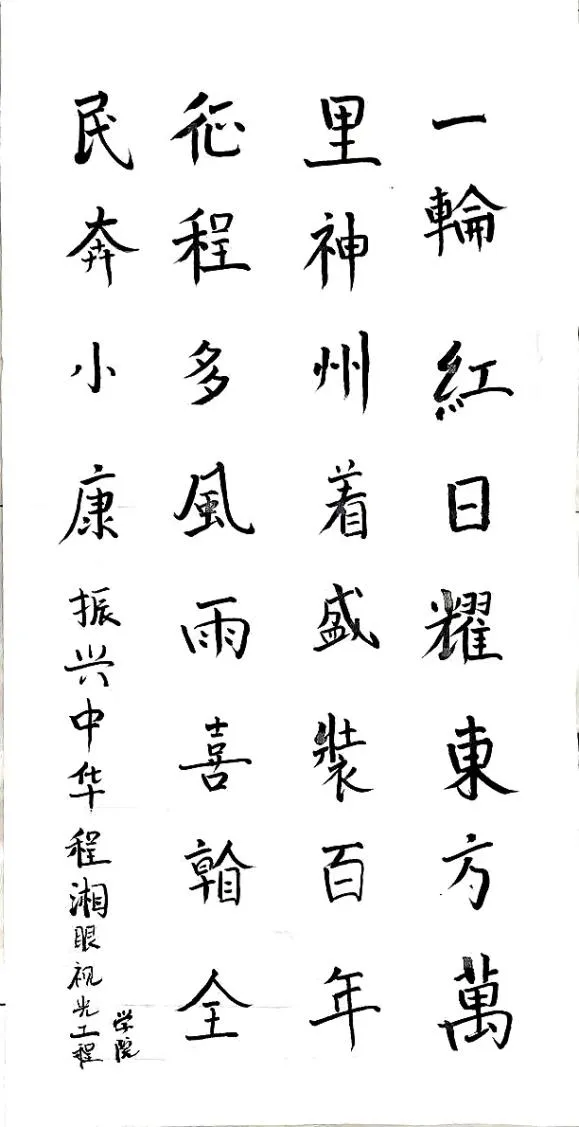 一輪紅日耀東方萬
里神州着盛裝百年
征程多風雨喜全
民奔小康振兴中华程湘眼视光工程
学院